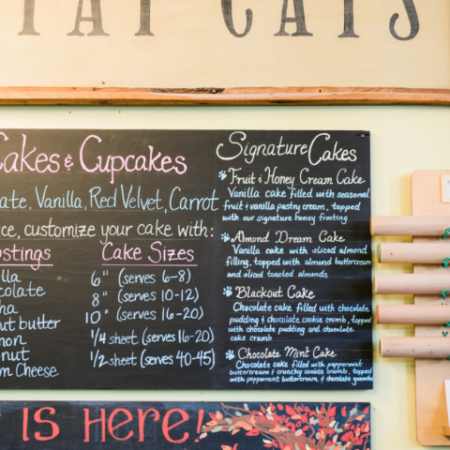 TAT CATS
Cakes & Cupcakes
ate, Vanilla, Red Velvet, Carrot
ce, customize your cake with:
stings
lla
colate
ha
nut butter
mon
onut
m Cheese
Cake Sizes
6" (serves 6-8)
8" (serves 10-12)
10" (serves 16-20)
1/4 sheet (serves 16-20)
1/2 sheet (serves 40-45)
Signature Cakes
Fruit & Honey Cream Cake
Vanilla cake filled with seasonal
fruit & vanilla pastry cream, topped
with our signature honey frosting
Almond Dream Cake
Vanilla cake with sliced almond
filling, topped with almond buttercream
and sliced toasted almonds
Blackout Cake
Chocolate cake filled with chocolate
pudding & chocolate cookie crumb, topped
with chocolate pudding and chocolate
cake crumb
Chocolate Mint Cake
Chocolate cake filled with peppermint
buttercream & crunchy cookie crumb, topped
with peppermint buttercream, & chocolate ganache
IS HERE!